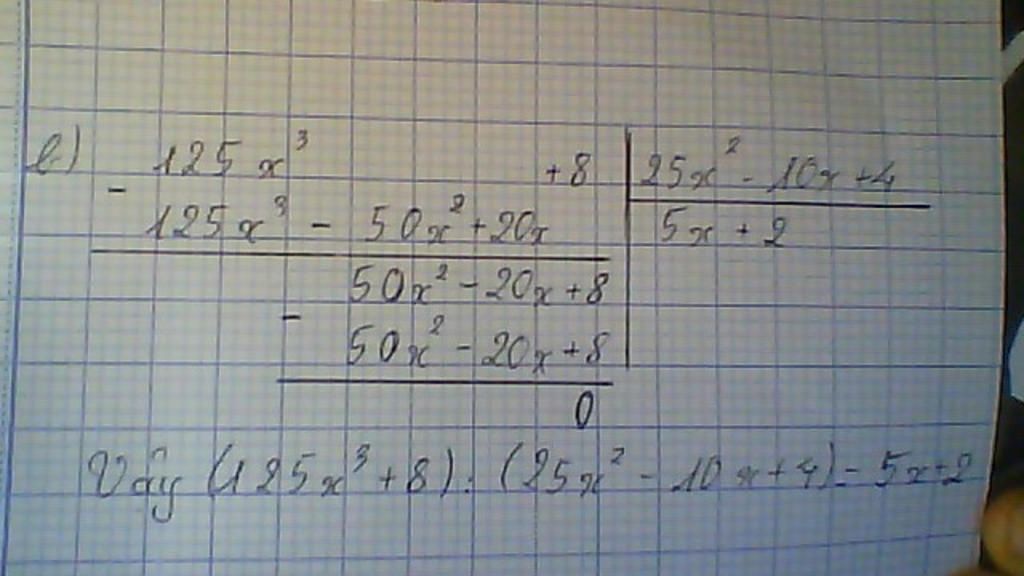 e) 125x³ +8 | 25x² - 10x + 4
- 125x³ - 50x² + 20x | 5x + 2
50x² - 20x + 8
- 50x² - 20x + 8
0
Vậy (125x³ + 8) : (25x² - 10x + 4) = 5x + 2